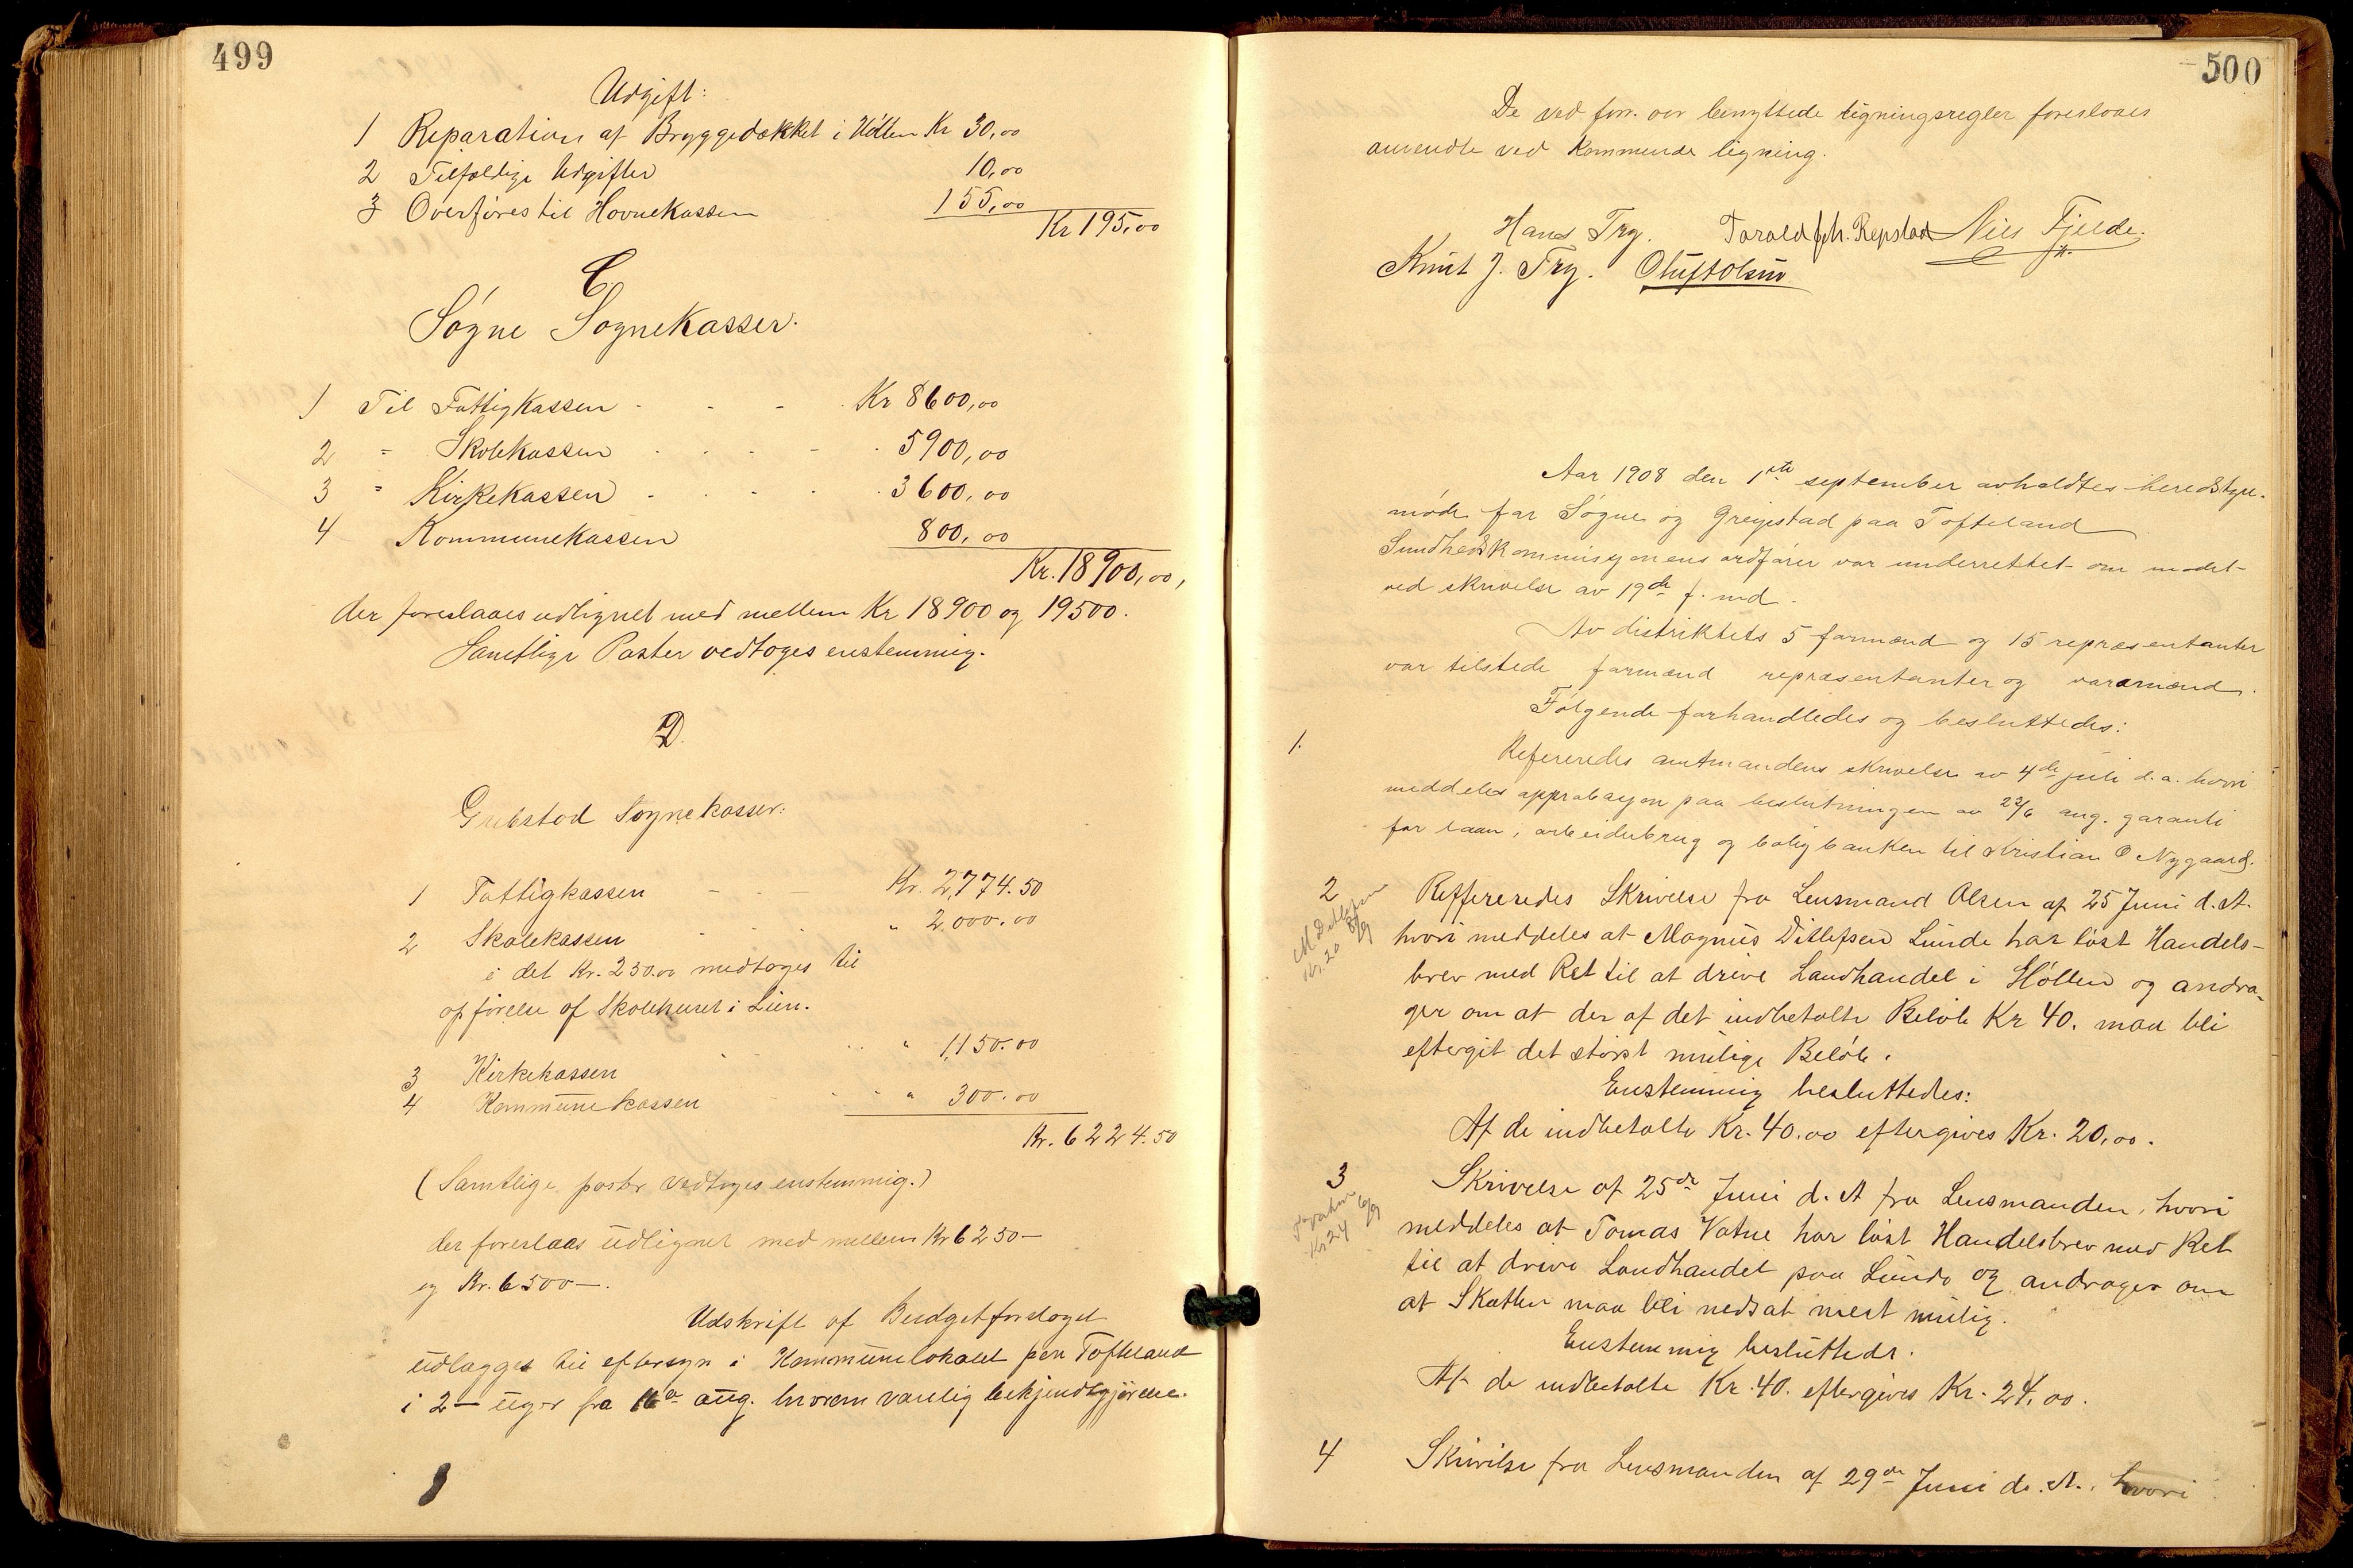 499
Udgift:
1 Reparation af Bryggedækket i Høllen Kr 30,00
2 Tilfældige Udgifter 10,00
3 Overføres til Havnekassen 155,00
Kr 195,00
C
Søgne Sognekasser.
1 Til Fattigkassen - - - Kr 8600,00
2 " Skolekassen . . . - . 5900,00
3 " Kirkekassen - . . . . 3600,00
4 Kommunekassen 800,00
Kr. 18900,00,
der foreslaaes udlignet med mellem Kr 18900 og 19500.
Samtlige Poster vedtoges enstemmig.
D.
Greibstad Sognekasser:
1 Fattigkassen - - - Kr. 2,774.50
2 Skolekassen . . . " 2,000.00
i det Kr. 250.00 medtages til
opførelse af Skolehuset i Lien.
3 Kirkekassen " 1,150.00
4 Kommunekassen " 300.00
Kr. 6224.50
(Samtlige poster vedtoges enstemmig.)
der foreslaas udlignet med mellem Kr 6250-
og Kr. 6500-.
Udskrift af Budgetforslaget
udlægges til eftersyn i Kommunelokalet paa Tofteland
i 2- uger fra aug. hvorom vanlig bekjendtgjørelse.
500
De ved forr. aar benyttede ligningsregler foreslaaes
anvendte ved kommende ligning.
Hans Try. Torald Repstad Nils Fjelde.
jr.
Knut J. Try. Oluf Olsen
Aar 1908 den 1ste september avholdtes heredstyre-
møde for Søgne og Greipstad paa Tofteland
Sundhedskommisjonens ordfører var underrettet om mødet
ved skrivelse av 19de f. md.
Av distriktets 5 formænd og 15 repræsentanter
var tilstede formænd repræsentanter og varamænd.
Følgende forhandledes og besluttedes:
1. Refereredes amtmandens skrivelse av 4de juli d.a. hvori
meddeles approbasjon paa beslutningen av 22/6 ang. garanti
for laan i arbeiderbrug og boligbanken til Kristian O Nygaard.
2 Reffereredes Skrivelse fra Lensmand Olsen af 25 Juni d. A.
M Ditlefsen
Kr. 20
hvori meddeles at Magnus Ditlefsen Lunde har løst Handels-
brev med Ret til at drive Landhandel i Høllen og andra-
ger om at der af det indbetalte Beløb Kr 40. maa bli
eftergit det størst mulige Beløb.
Enstemmig besluttedes:
Af de indbetalte Kr. 40.00 eftergives Kr. 20,00.
3 Skrivelse af 25de Juni d. A fra Lensmanden, hvori
Vatne 6/9
Kr 24
meddeles at Tomas Vatne har løst Handelsbrev med Ret
til at drive Landhandel paa Lunde og andrager om
at Skatten maa bli nedsat mest mulig.
Enstemmig besluttedes.
Af de indbetalte Kr. 40. eftergives Kr. 24,00.
4 Skrivelse fra Lensmanden af 29de Juni d. A., hvori